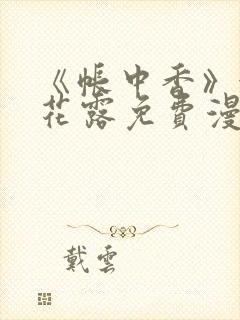 《帐中香》
花露免費漫
戴雲